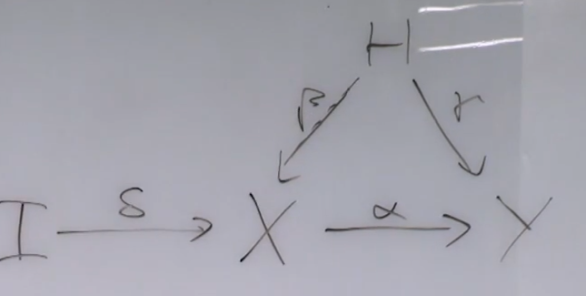 H
β γ
I δ X α Y